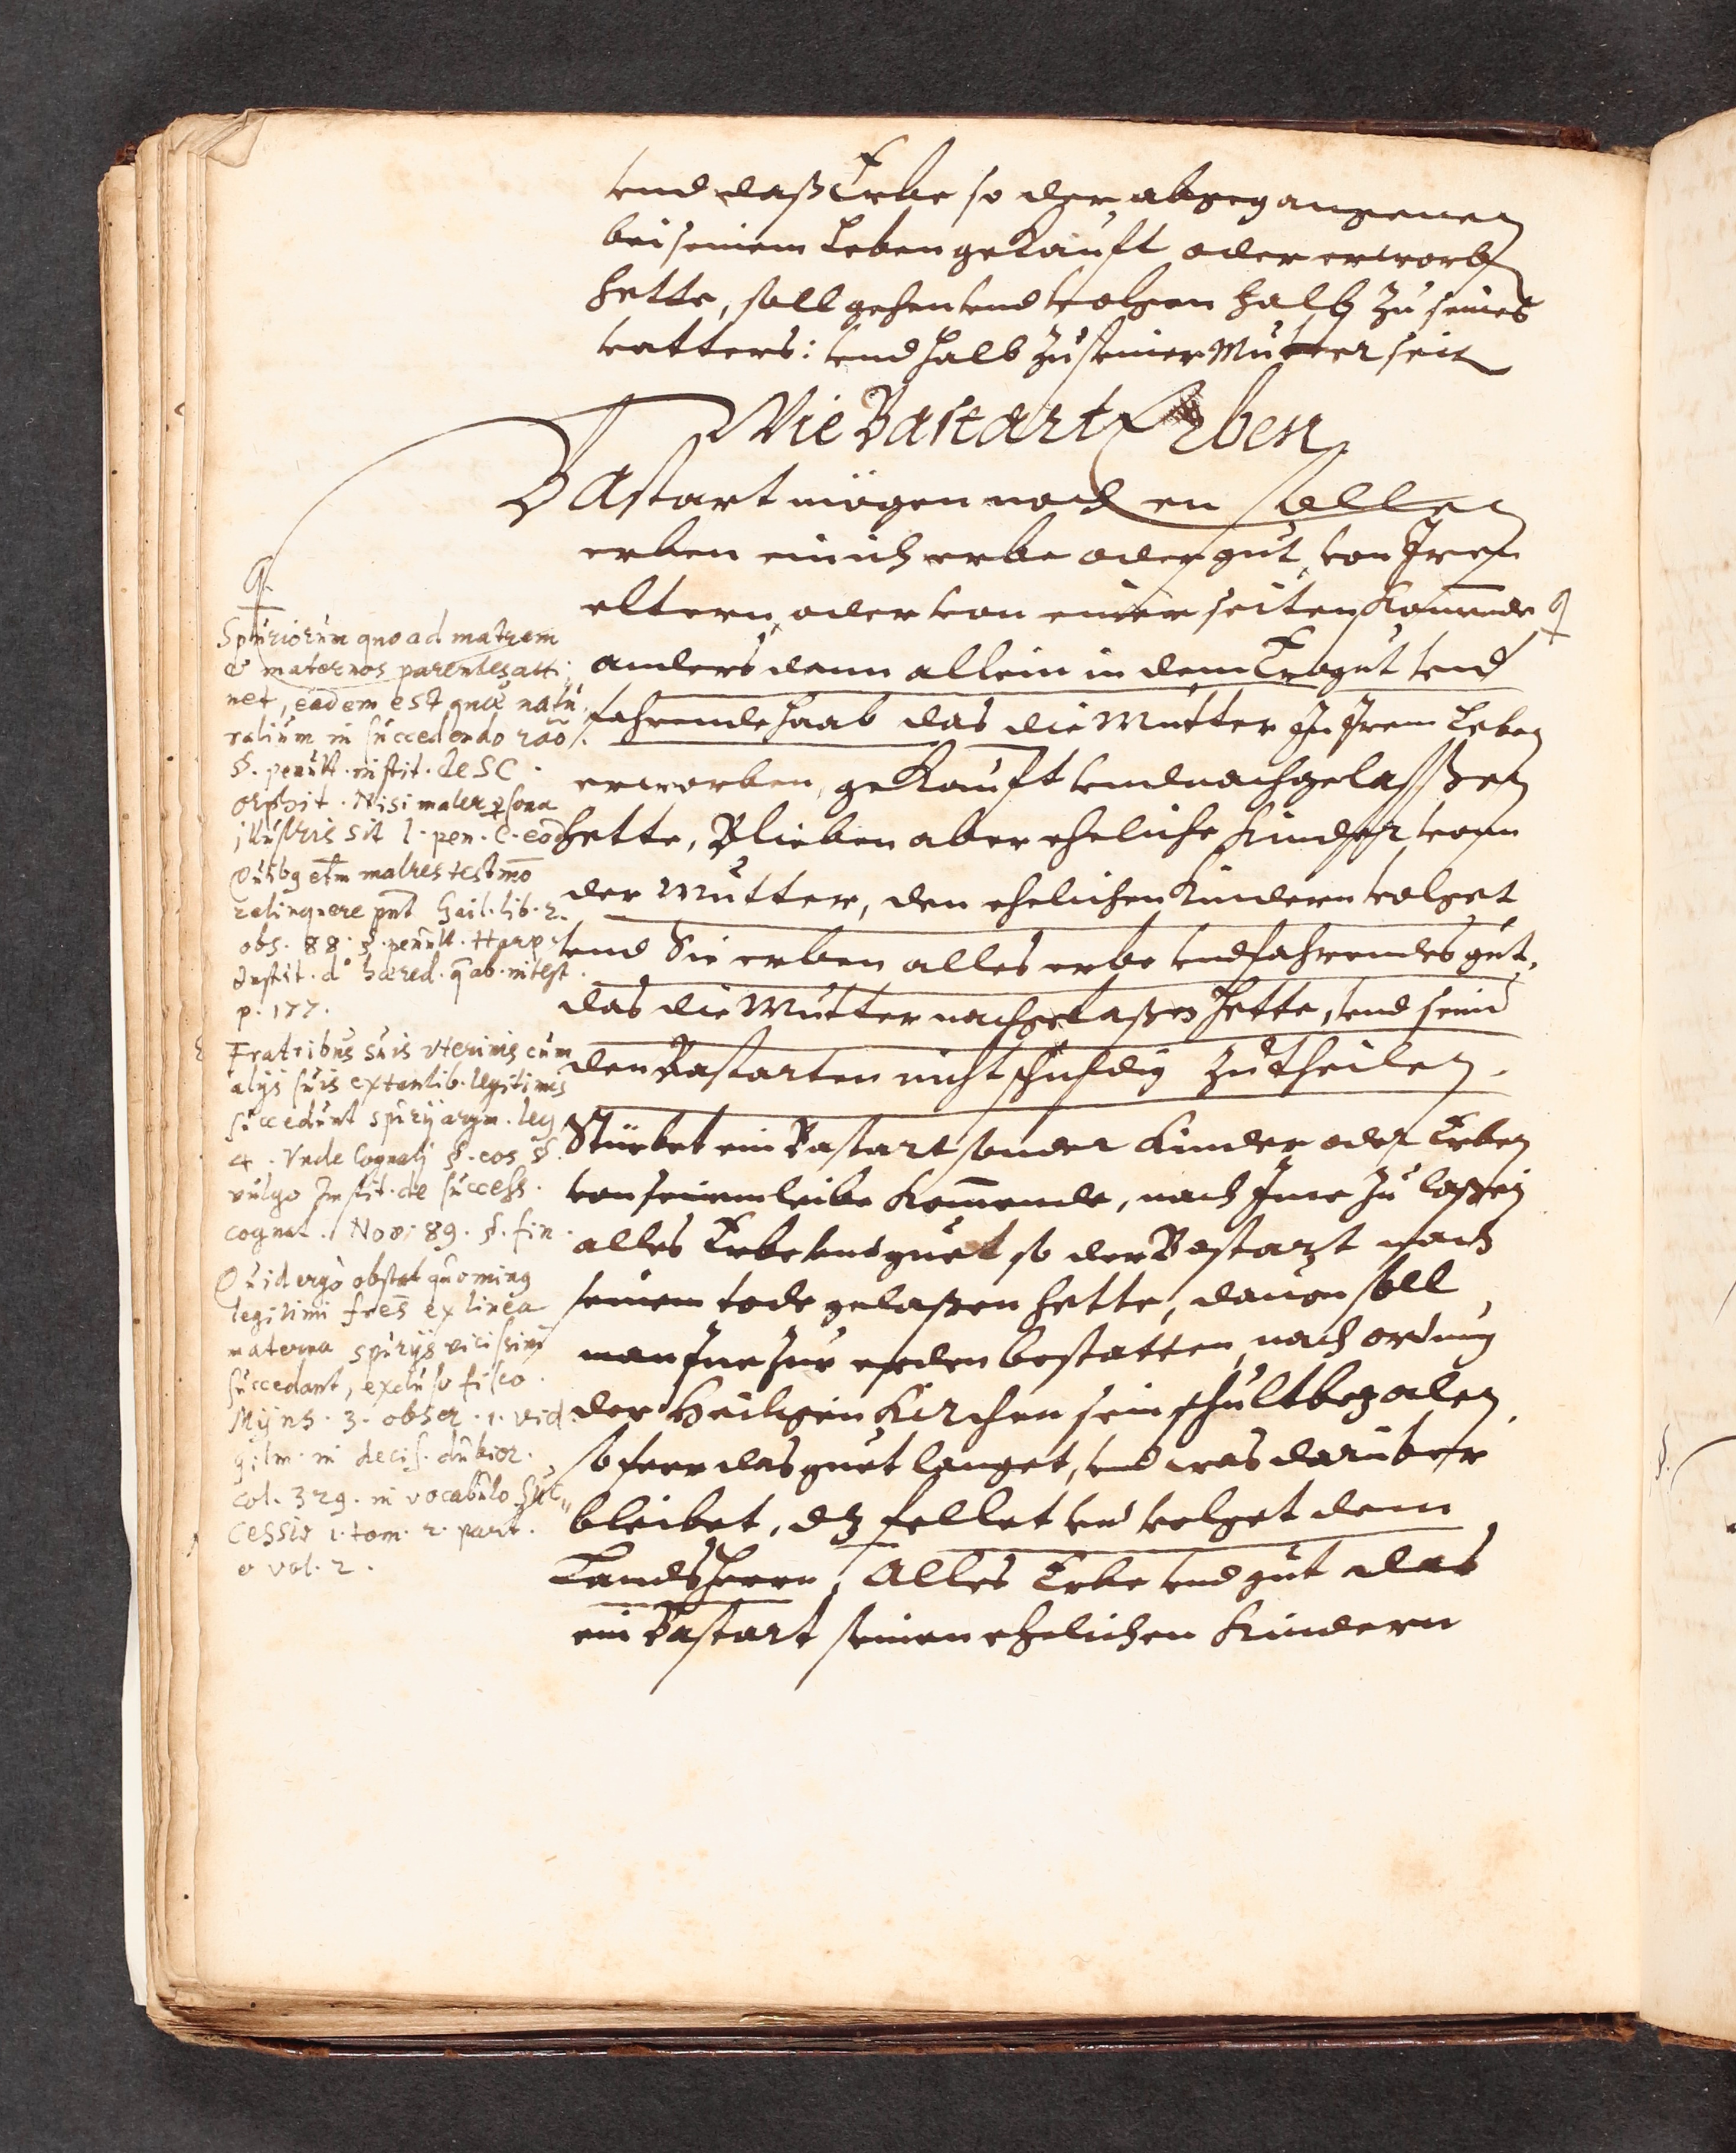 vnd daß Erbe so der abgegangenen
bei seinem Leben gekaufft oder erworbn
hette, soll gehen vnd volgen halb zu seines
vatters: vnd halb zu seiner Mutter seit
Wie Bastart Erben
Bastart mögen noch en sollen
erben einich erbe oder gut, von Iren
eltern, oder von einer seiten komende
anders dann allein in dem Erbgut vnd
fahrende haab das die Mutter In Irem Leben
erworben, gekaufft vnd nachgelassen
hette, Blieben aber eheliche Kinder vonn
der Mutter, den ehelichen Kindern volget
vnd Sie erben alles erbe vnd fahrendes gut,
das die Mutter nachgelaßen hette, vnd seind
den Bastarten nicht schuldig zu theilen.
Stürbet ein Bastart sonder Kinder oder Erben
von seinem leibe komende, nach Ime zu laßen
alles Erbe vnd guet so der Bastart nach
seinem tode gelaßen hette, dauon soll
man Ine zur erden bestatten, nach ordnung
der Heiligen Kirchen sein schult bezalen,
so fern das guet langet, vnd was darüber
bleibet, dz fellet vnd volget dem
Landsherrn, Alles Erbe vnd gut das
ein Bastart seinen ehelichen Kindern
Spuriorum quo ad matrem
& maternos parentes atti-
net, eadem est quae natu-
ralium in succedendo rao.
§. penult. instit. de SC.
Orphit. Nisi mater psona
illustris sit l. pen. C. eod
Quibg etm matres testmo
relinquere pnt Gail. lib. 2.
obs. 88. §. penult. Harp.
Instit. d° haered. q ab intest.
p. 177.
Fratribus suis vterinis cum
alijs suis extantib. legitimis
succedunt spurij argm. leg
4. Vnde Cognatj §. eos §.
vulgo Instit. de success.
cognat. Nov. 89. §. fin.
Quid ergo obstat quoming
legitimi fres ex linea
materna spurijs vicissim
succedant, excluso fisco.
Myns. 3. obser. 1. vid.
gilm. in decis. dubior.
col. 329. in vocabulo Suc-
cessio 1. tom. 2. part.
e vol. 2.